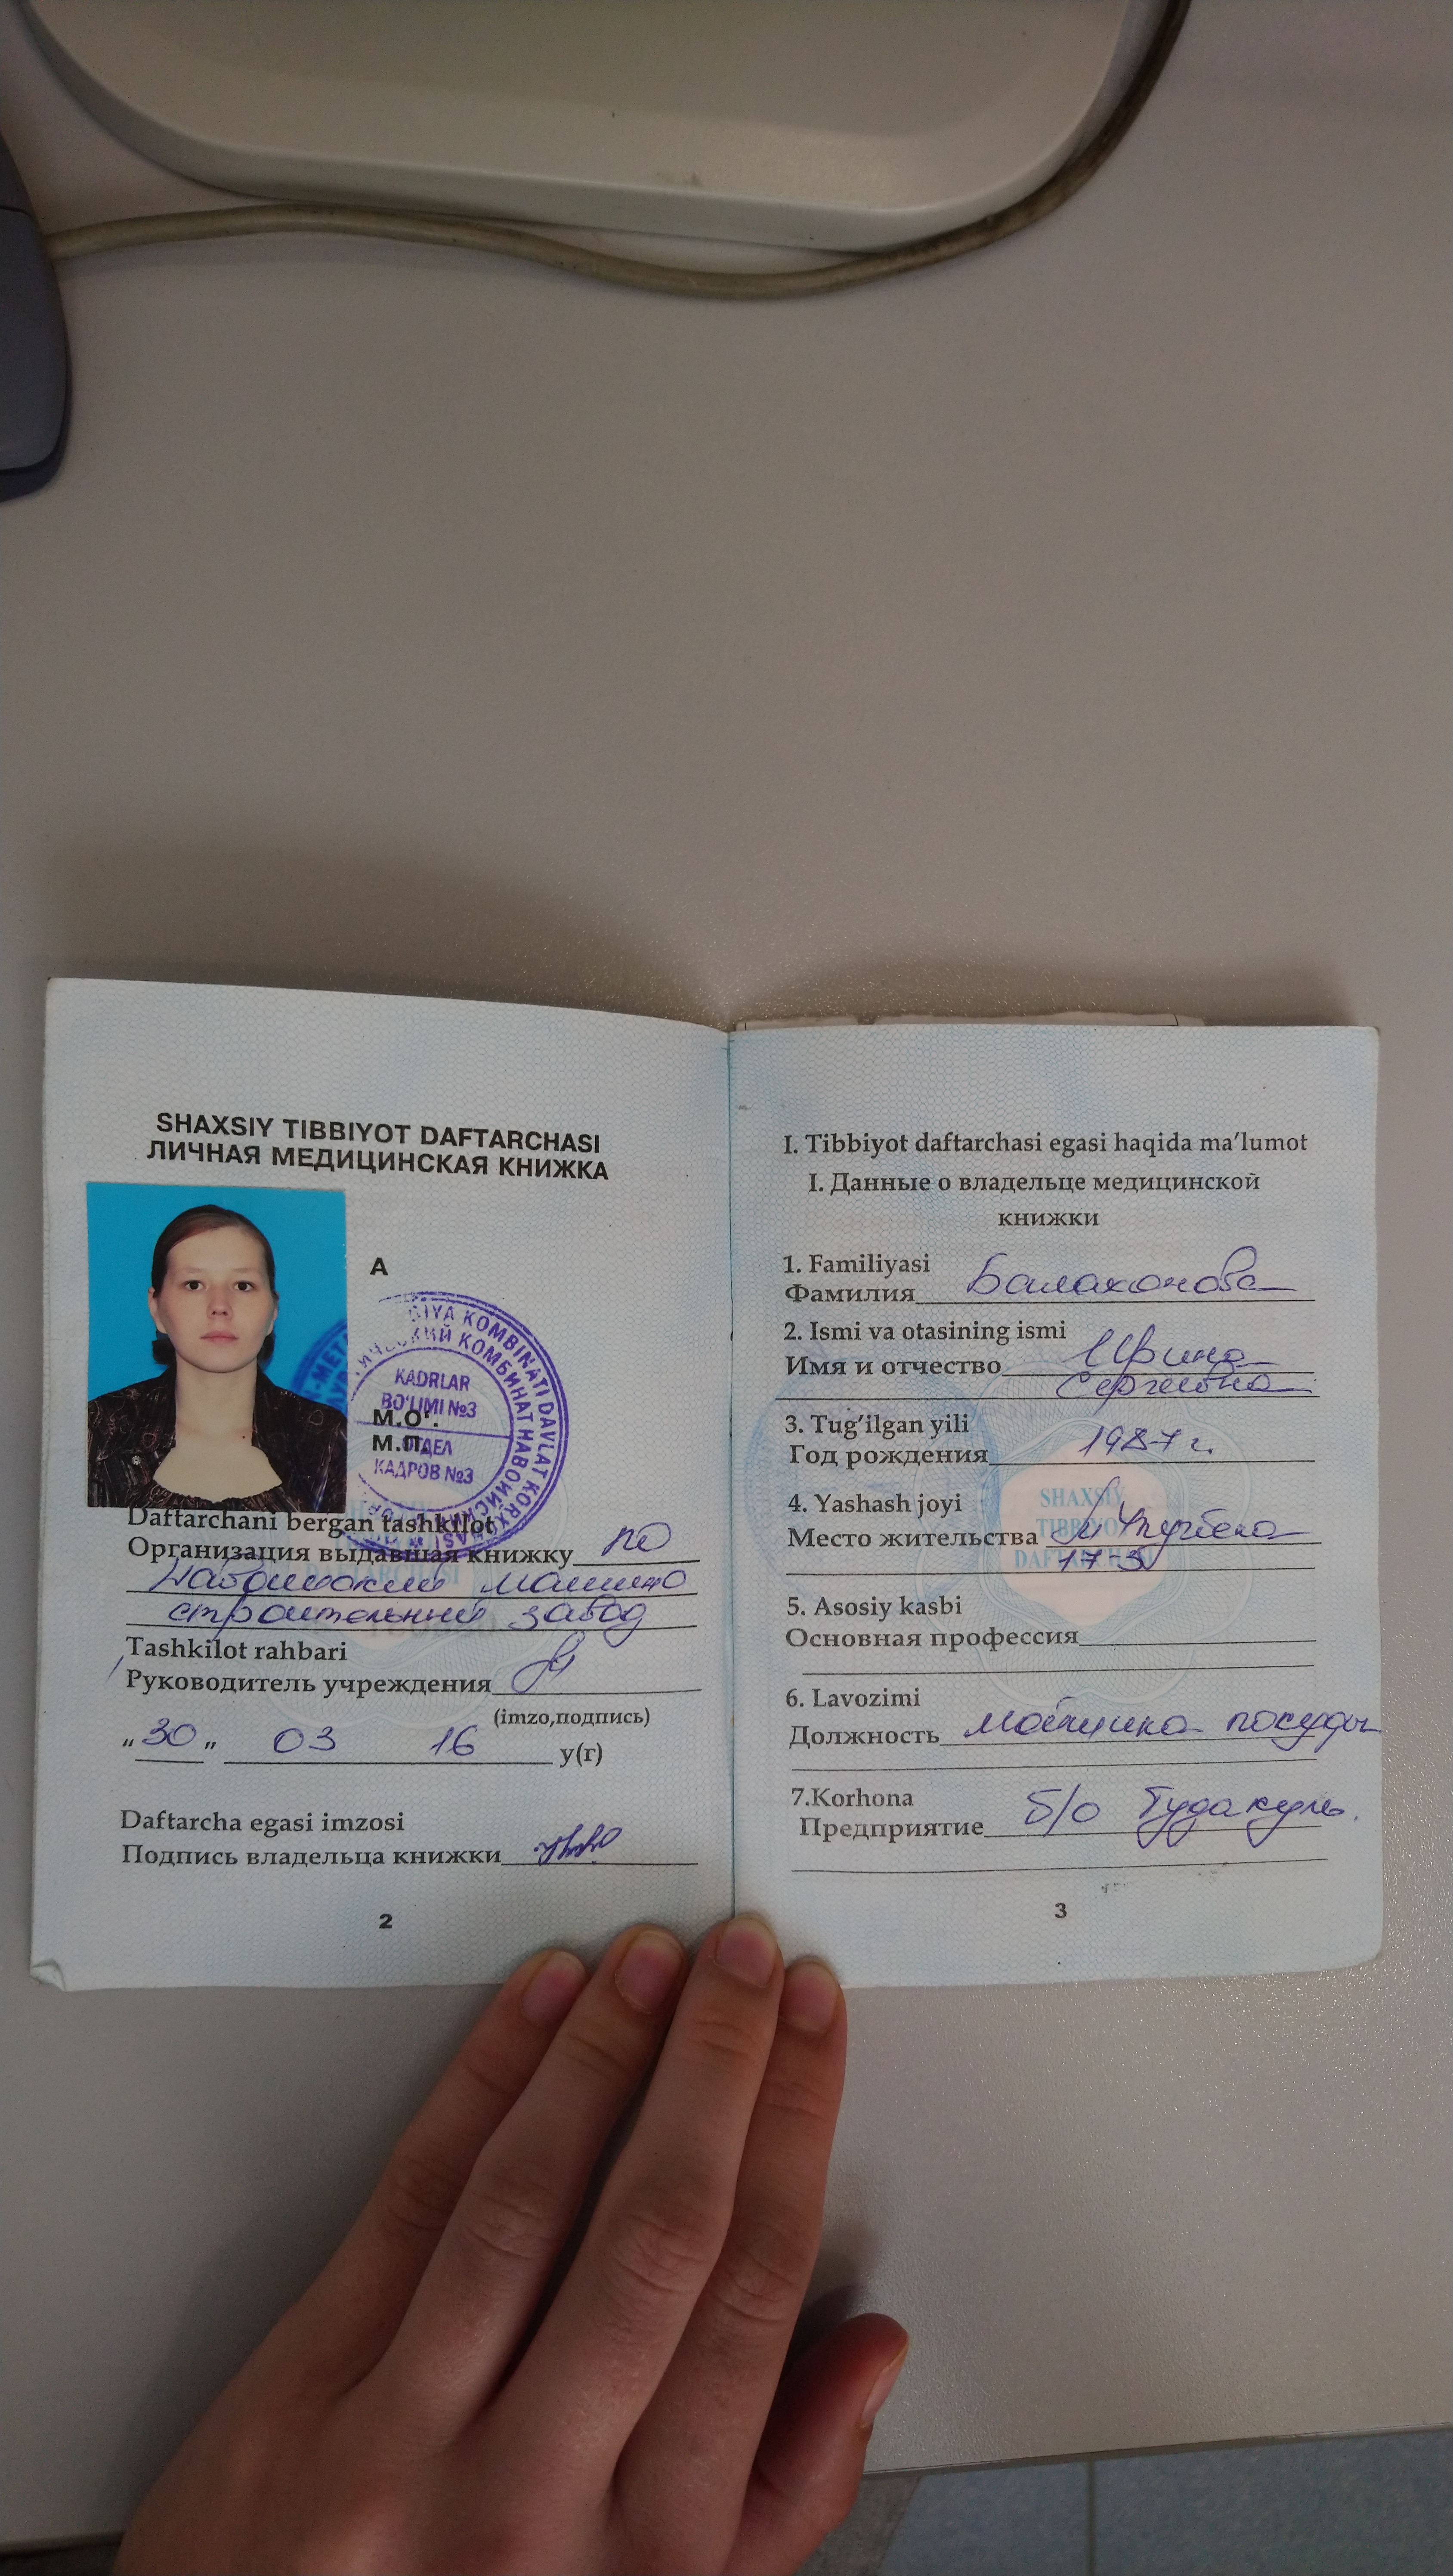 SHAXSIY TIBBIYOT DAFTARCHASI
ЛИЧНАЯ МЕДИЦИНСКАЯ КНИЖКА
A
KADRLAR
BO'LIMI №3
М.О'.
М.П.
ОТДЕЛ
КАДРОВ №3
Daftarchani bergan tashkilot
Организация выдавшая книжку ПО
Навоийский машино
строительный завод
Tashkilot rahbari
Руководитель учреждения
(imzo,подпись)
„30„ 03 16 у(г)
Daftarcha egasi imzosi
Подпись владельца книжки
2
I. Tibbiyot daftarchasi egasi haqida ma'lumot
I. Данные о владельце медицинской
книжки
1. Familiyasi
Фамилия Балахонова
2. Ismi va otasining ismi
Имя и отчество Ирина
Сергеевна
3. Tug'ilgan yili
Год рождения 1987 г.
SHAXSIY
TIBBIYOT
DAFTARCHASI
4. Yashash joyi
Место жительства Улугбека
5. Asosiy kasbi
Основная профессия
6. Lavozimi
Должность мойщика посуды
7.Korhona
Предприятие б/о Тудакуль.
3